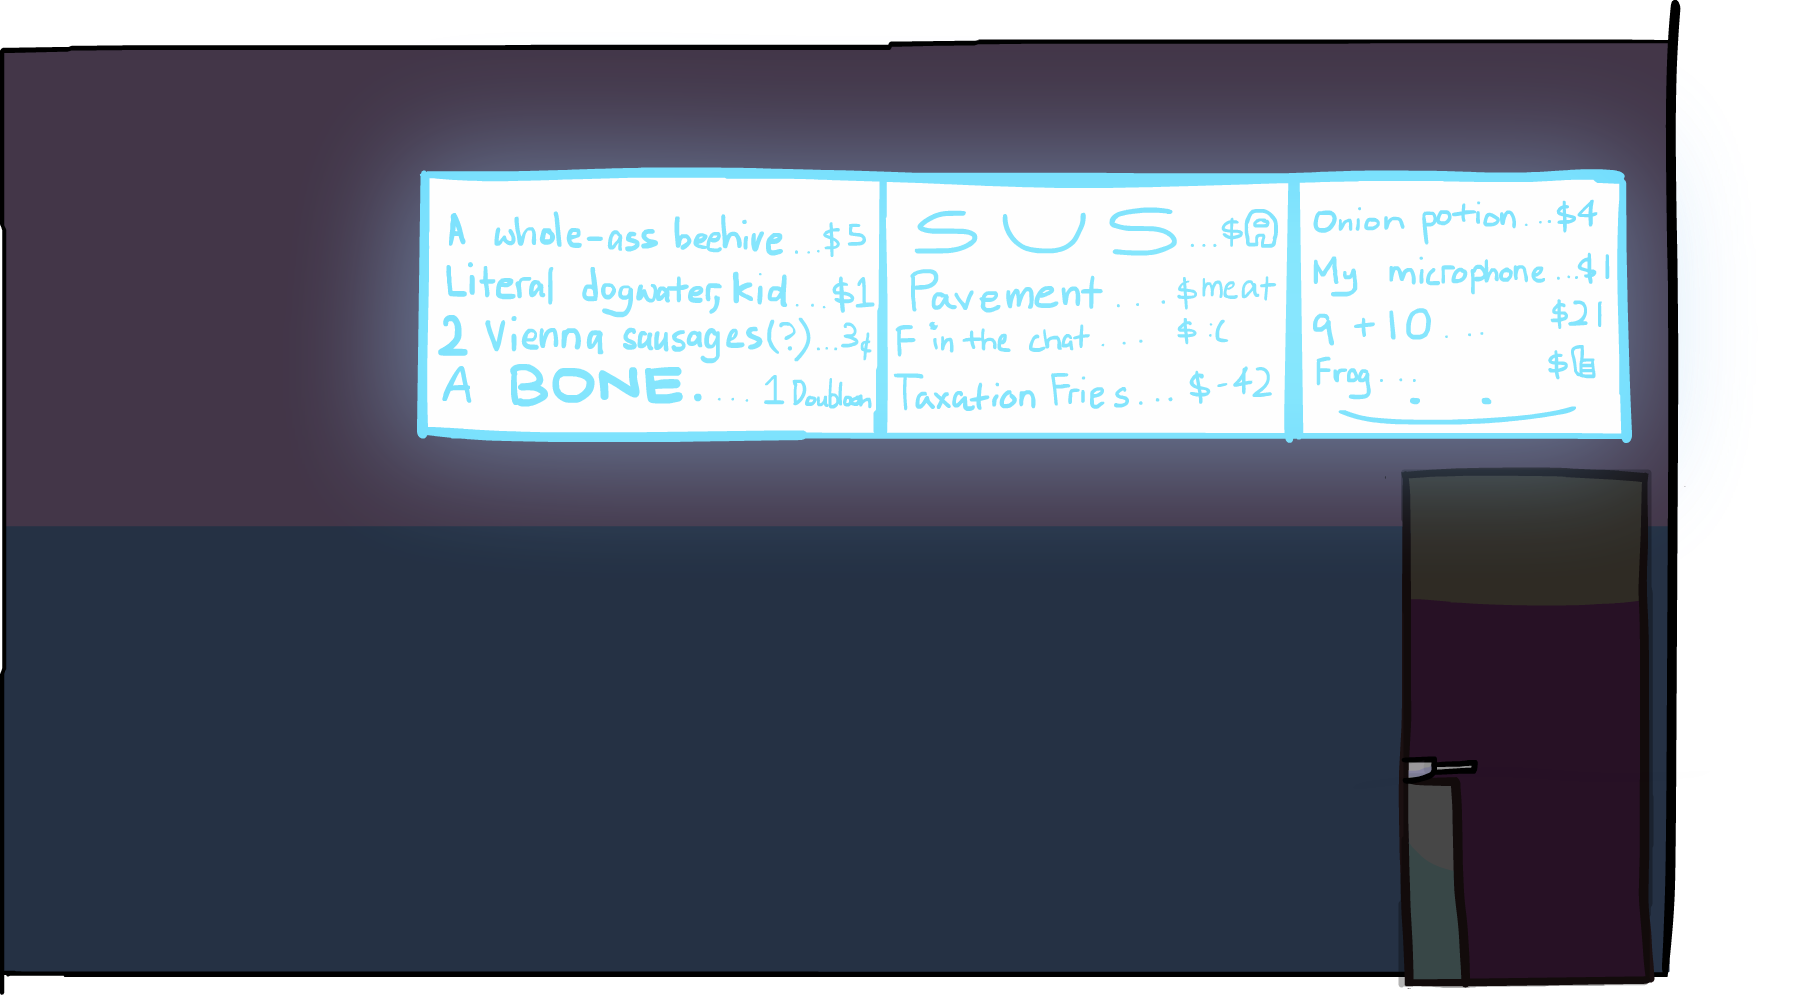 A whole-ass beehive...$5
Literal dogwater, kid...$1
2 Vienna sausages(?)...3¢
A BONE.....1 Doubloon
SUS...$
Pavement...$meat
F in the chat....$ :(
Taxation Fries...$-42
Onion potion...$4
My microphone...$1
9 + 10...$21
Frog...$